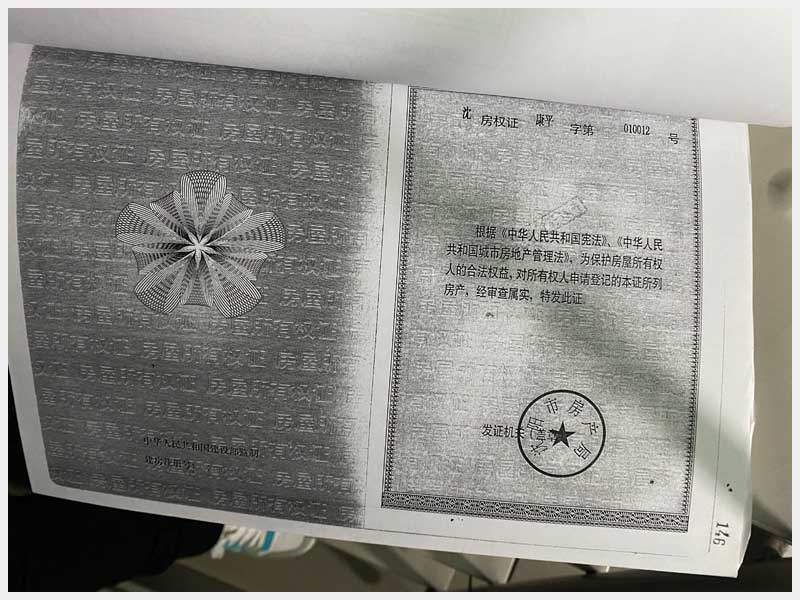 房屋所有权证
中华人民共和国建设部监制
建房注册号:
沈 房权证 康平 字第 010012 号
根据《中华人民共和国宪法》、《中华人民
共和国城市房地产管理法》,为保护房屋所有权
人的合法权益,对所有权人申请登记的本证所列
房产,经审查属实,特发此证。
发证机关
市房产局
146